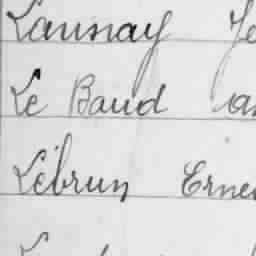 Launay Je
Le Baud an
Lebrun Ernes